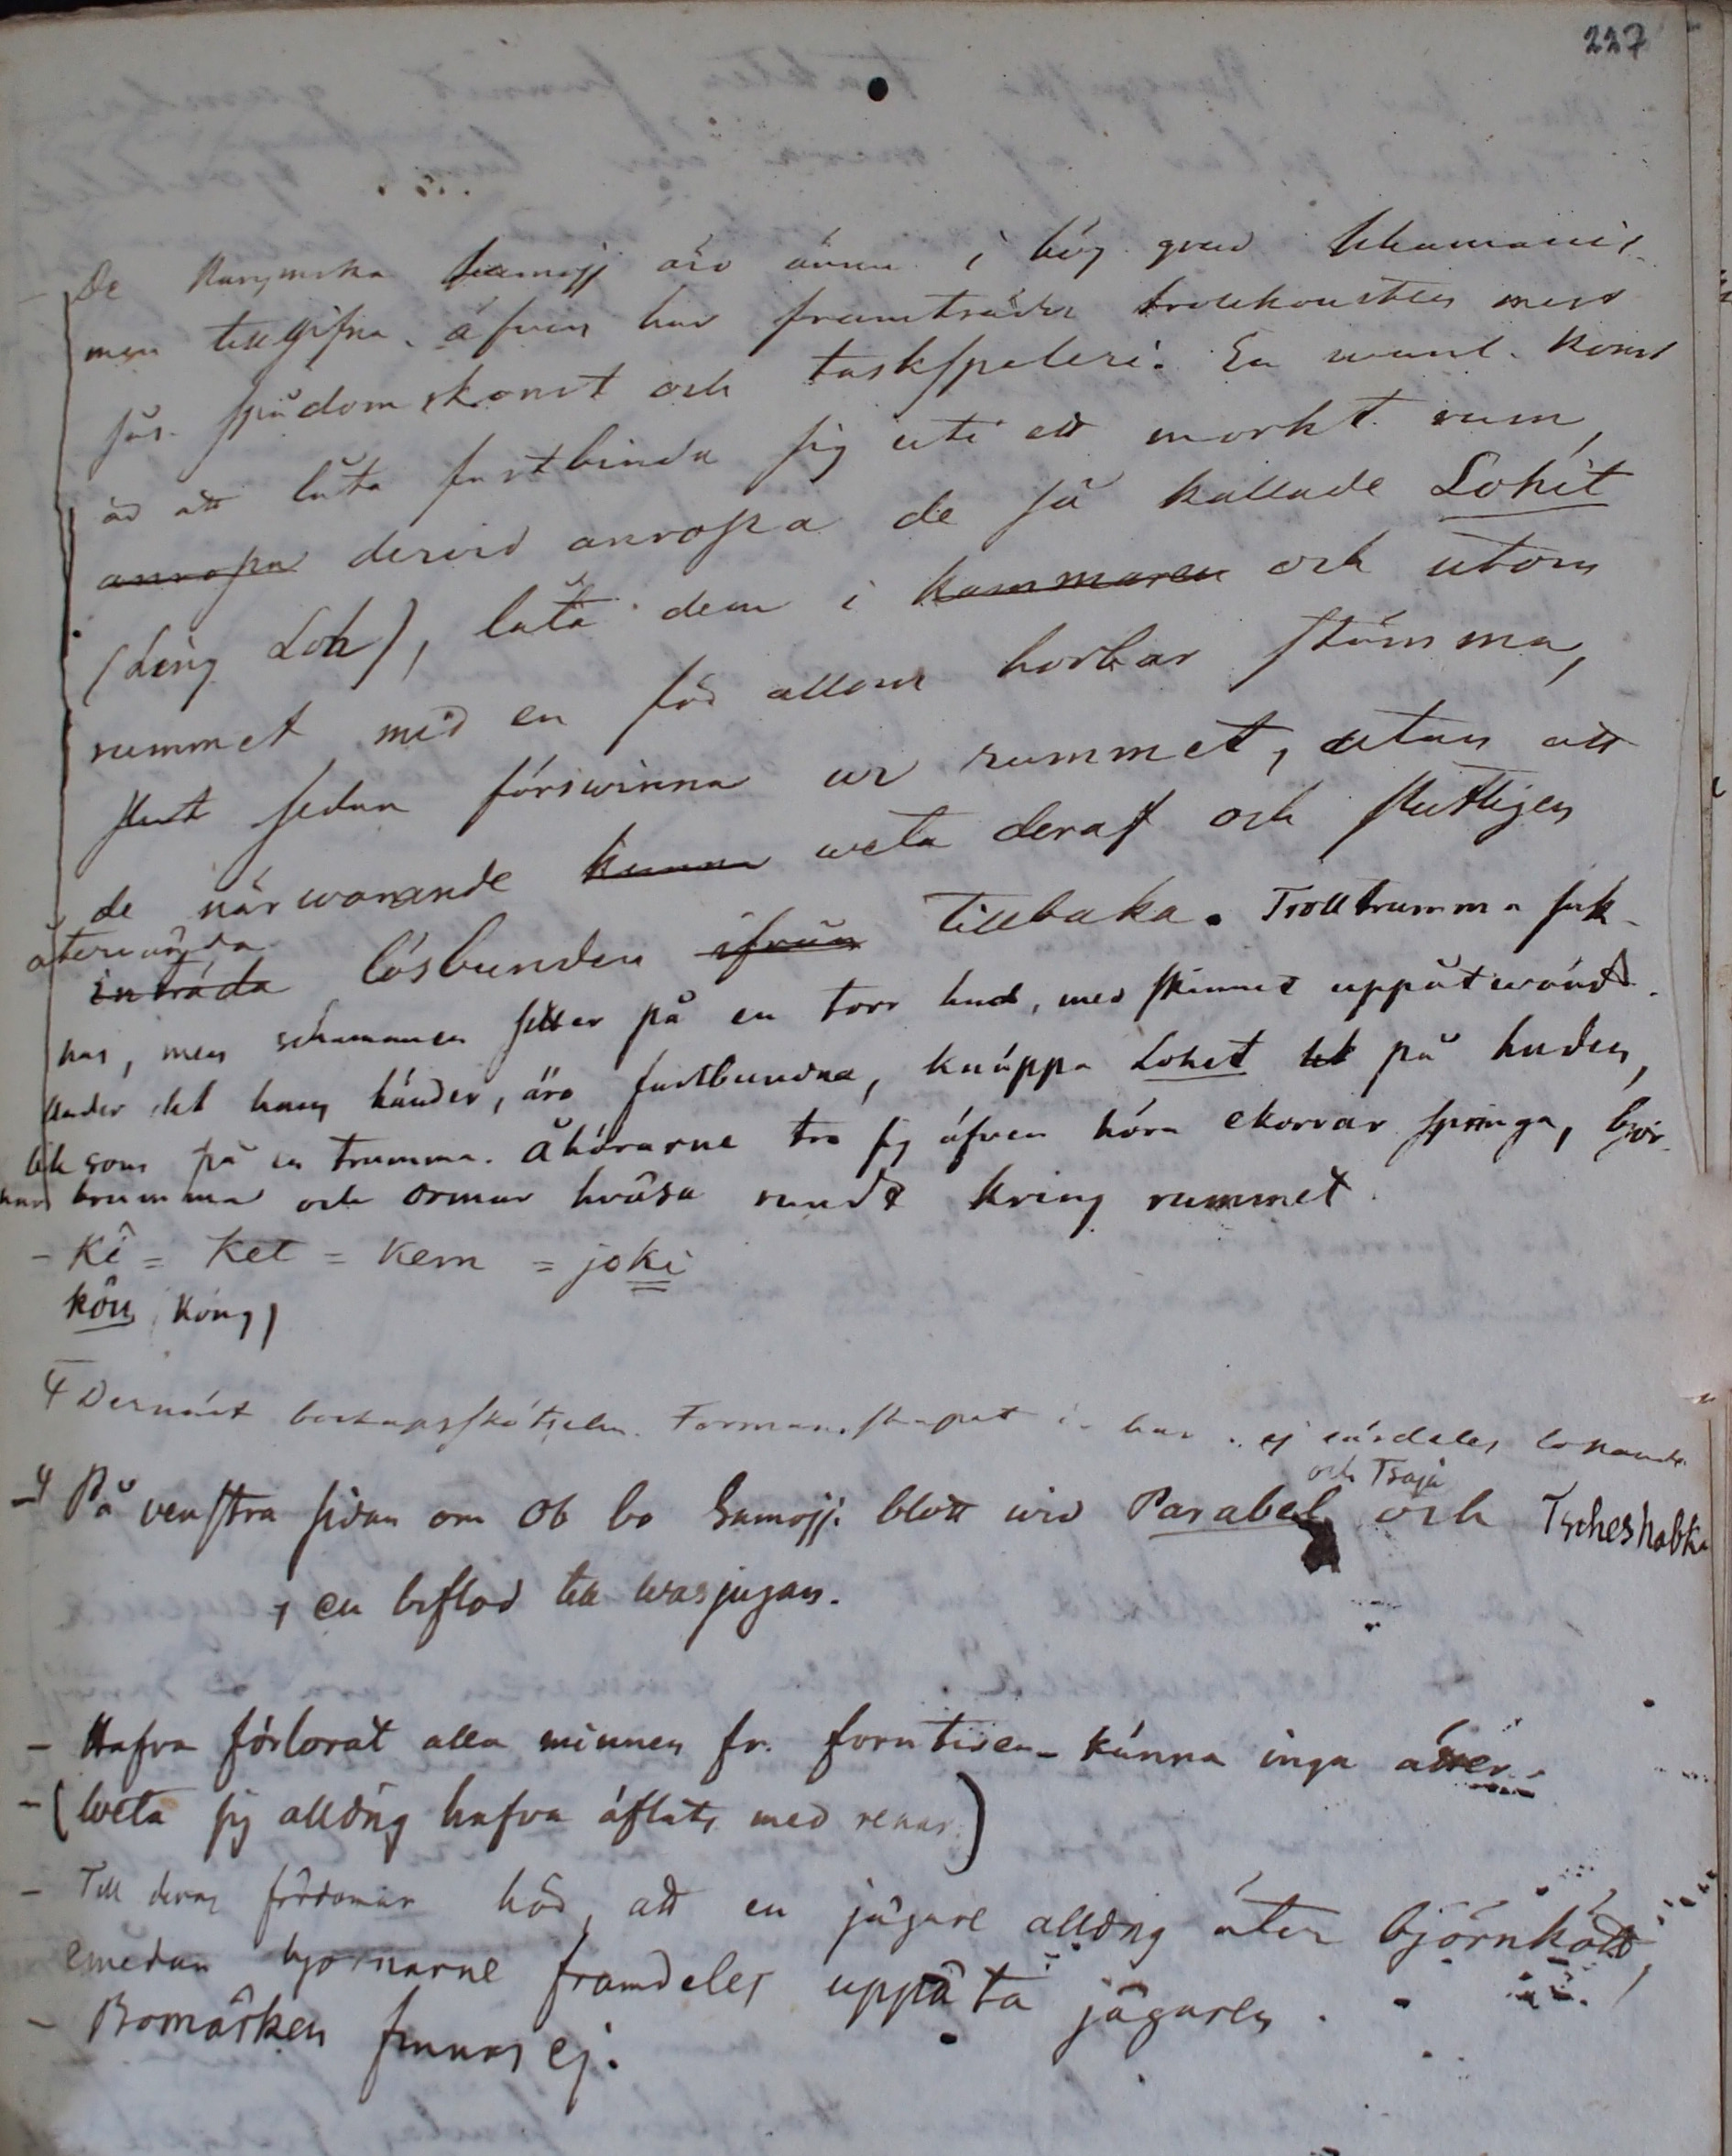 227
– De Narymska Samojj äro ännu i hög grad schamanis-
men tillgifna. äfven här framträder trollkonsten mest
sås. spådomskonst och taskspeleri. En wanl. konst
är att låta fastbinda sig uti ett morkt rum,
anropa dervid anropa de så kallade Lohit
(Sing Loh), låta dem i kammaren och utom
rummet med en för allom horbar stämma,
sedan förswinna ur rummet, utan att
de närwarande kunna weta deraf och slutligen
återvända
inträda lösbunden ifrån tillbaka. Trolltrumma sak-
nas, men schamanen sitter på en torr hud, med skinnet uppåtwändt.
Under det hans händer, äro fastbundna, knäppa Lohet på huden,
lik som på en trumma. Åhörarne tro sig äfven höra ekorrar springa, björ-
nar brumma och ormar hväsa rundt kring rummet.
– Kê = Ket = Kem = joki
kôn, kong)
4 Dernäst boskapsskötseln. Formanskapet här ej särdeles lonande
och Tsaja
– 4 På venstra sidan om Ob bo Samojj. blott wid Parabel och Tscheshabka
, en biflod till Wasjugan.
– Hafva förlorat alla minnen fr. forntiden – känna inga ätter.
– (Weta sig alldrig hafva aflats med renar.)
– Till deras fördomar hör, att en jägare alldrig äter björnkött,
emedan bjornarne framdeles uppäta jägaren.
– Bomärken finnas ej.